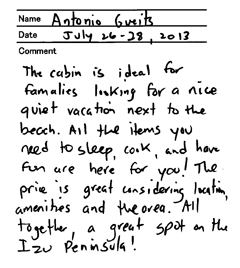 Name Antonio Gueits
Date July 26-28, 2013
Comment
The cabin is ideal for
famalies looking for a nice
quiet vacation next to the
beach. All the items you
need to sleep, cook, and have
fun are here for you! The
price is great considering location,
amenities and the area. All
together, a great spot on the
Izu Peninsula!